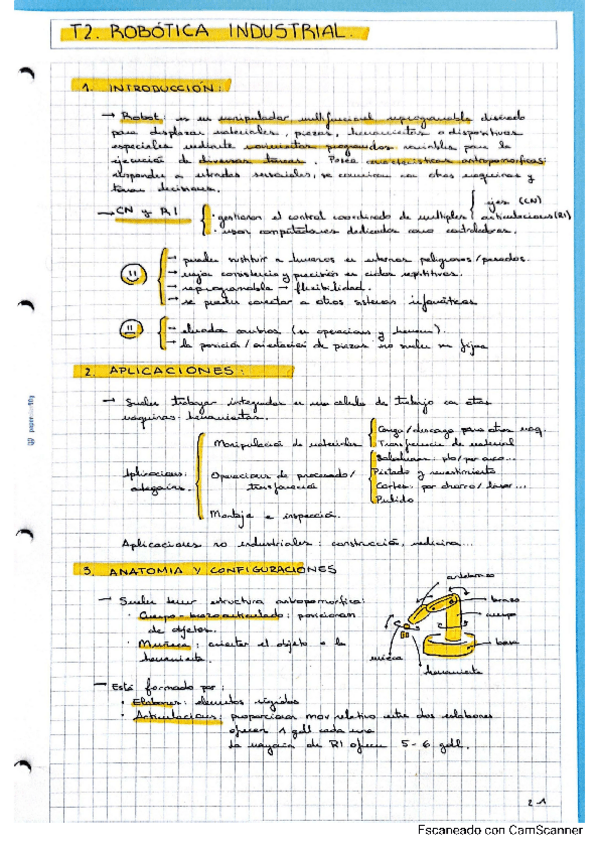 T2. ROBÓTICA INDUSTRIAL.
1. INTRODUCCIÓN:
→ Robot: es un manipulador multifuncional reprogramable diseñado
para desplazar materiales, piezas, herramientas o dispositivos
especiales mediante movimientos programados variables para la
ejecución de diversas tareas. Posee características antropomórficas:
responden a entradas sensoriales, se comunican con otras máquinas y
toman decisiones.
→ CN y RI
· gestionan el control coordinado de multiples
ejes (CN)
articulaciones (RI)
· usan computadores dedicados como controladores.
→ pueden sustituir a humanos en entornos peligrosos/pesados.
→ mejor consistencia y precisión en ciclos repetitivos.
→ reprogramable → flexibilidad.
→ se pueden conectar a otros sistemas informáticos
→ elevados cambios (en operaciones y
→ la posición/orientación de piezas no suele ser fija
2. APLICACIONES:
→ Suelen trabajar integrados en una célula de trabajo con otras
máquinas-herramientas.
Aplicaciones:
categorías.
Manipulación de materiales
Carga/descarga para otras maq.
Transferencia de material
Operaciones de procesado/
transformación
Soldadura: pto/por arco...
Pintado y revestimiento
Cortes: por chorro/laser...
Pulido
Montaje e inspección.
Aplicaciones no industriales: construcción, medicina...
3. ANATOMIA Y CONFIGURACIONES
→ Suelen tener estructura antropomórfica:
· Cuerpo + brazo articulado: posicionan
de objetos.
· Muñeca: orientar el objeto o la
herramienta.
antebrazo
brazo
cuerpo
base
muñeca
herramienta
→ Está formado por:
· Eslabones: elementos rígidos
· Articulaciones: proporcionan mov relativo entre dos eslabones
ofrecen 1 gdl cada una
la mayoría de RI ofrecen 5-6 gdl.
2.1
Escaneado con CamScanner